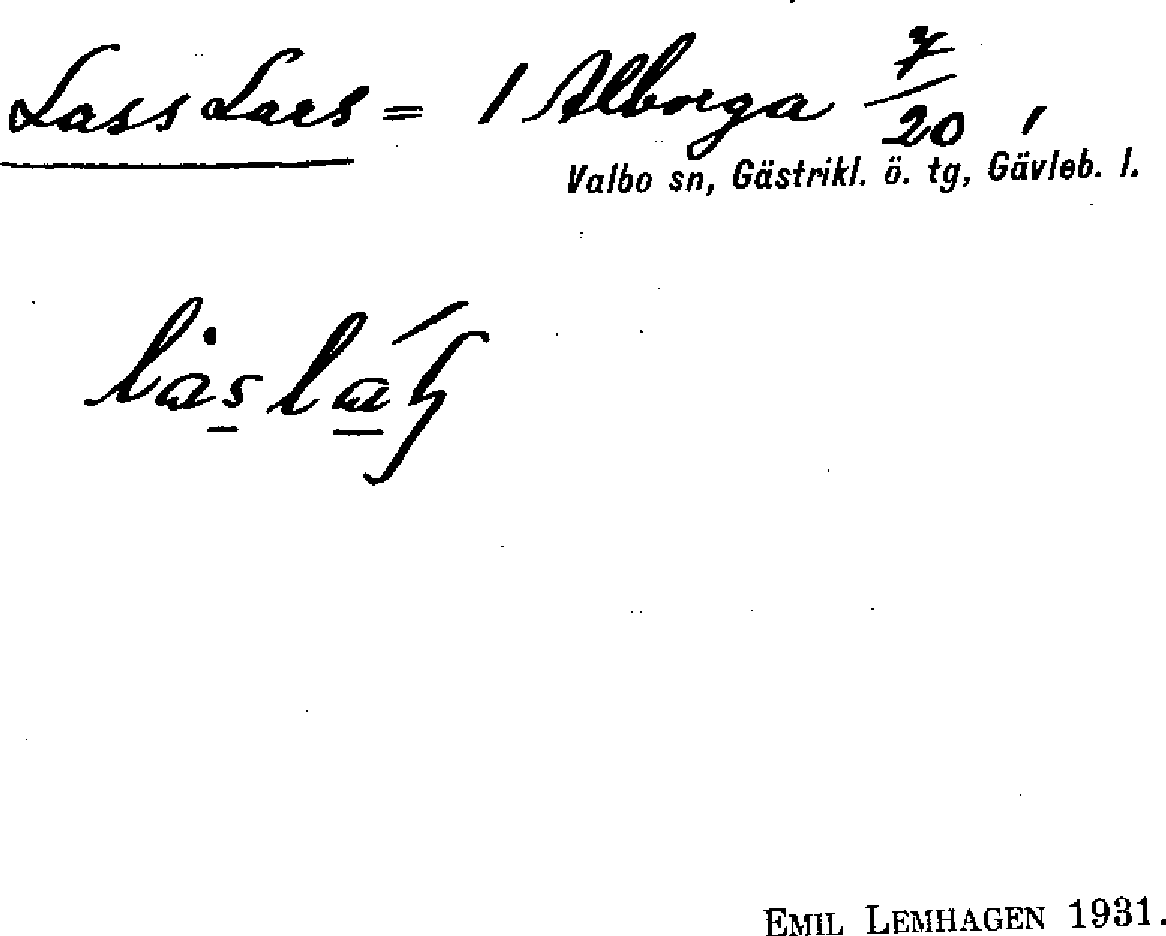 Lass Lars = 1 Alborga 7/20,
Valbo sn, Gästrikl. ö. tg, Gävleb. l.
EMIL LEMHAGEN 1931.